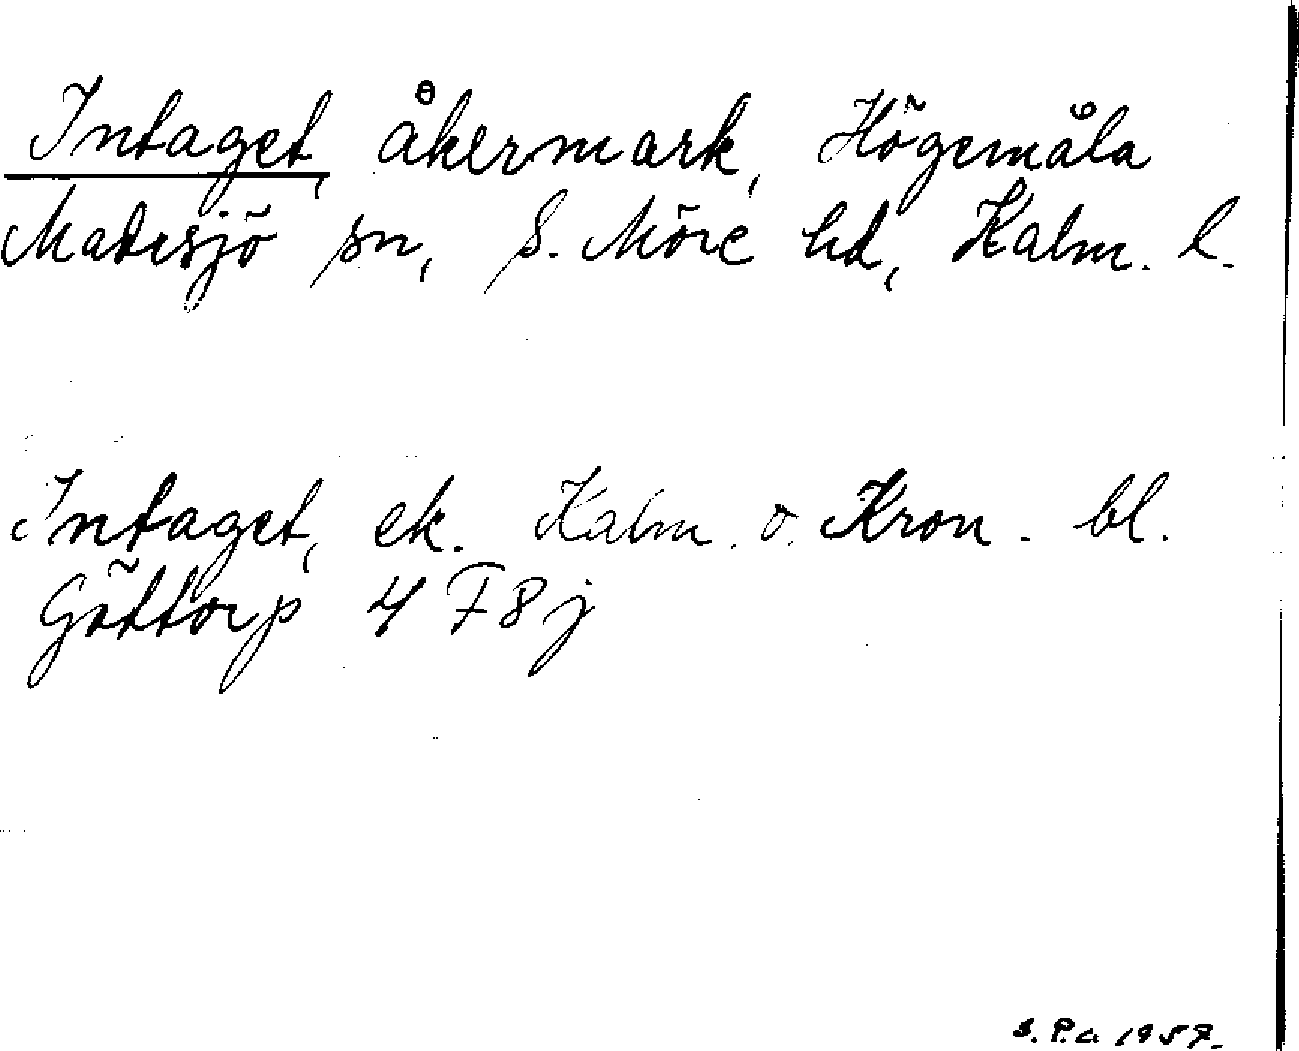 Intaget, åkermark, Högemåla
Madesjö sn, S. Möre hd, Kalm. l.
Intaget, ek. Kalm. o. Kron. bl.
Göttorp 4 F 8 j
S. P.a 1957.